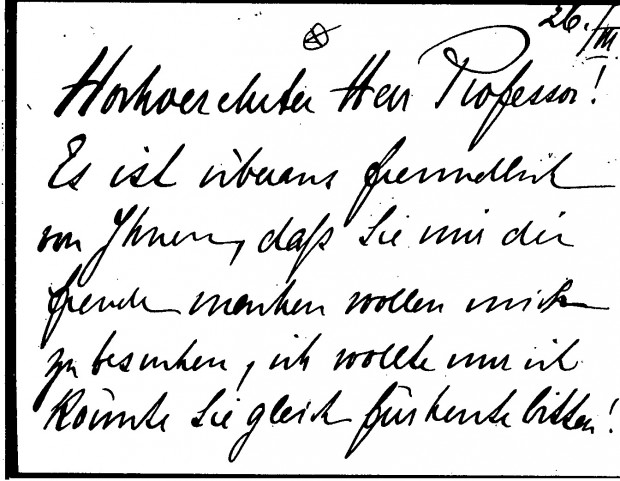 26./III.
Hochverehrter Herr Professor!
Es ist überaus freundlich
von Ihnen, daß Sie mir die
freude machen wollen mich
zu besuchen, ich wollte nur ich
könnte Sie gleich für heute bitten!